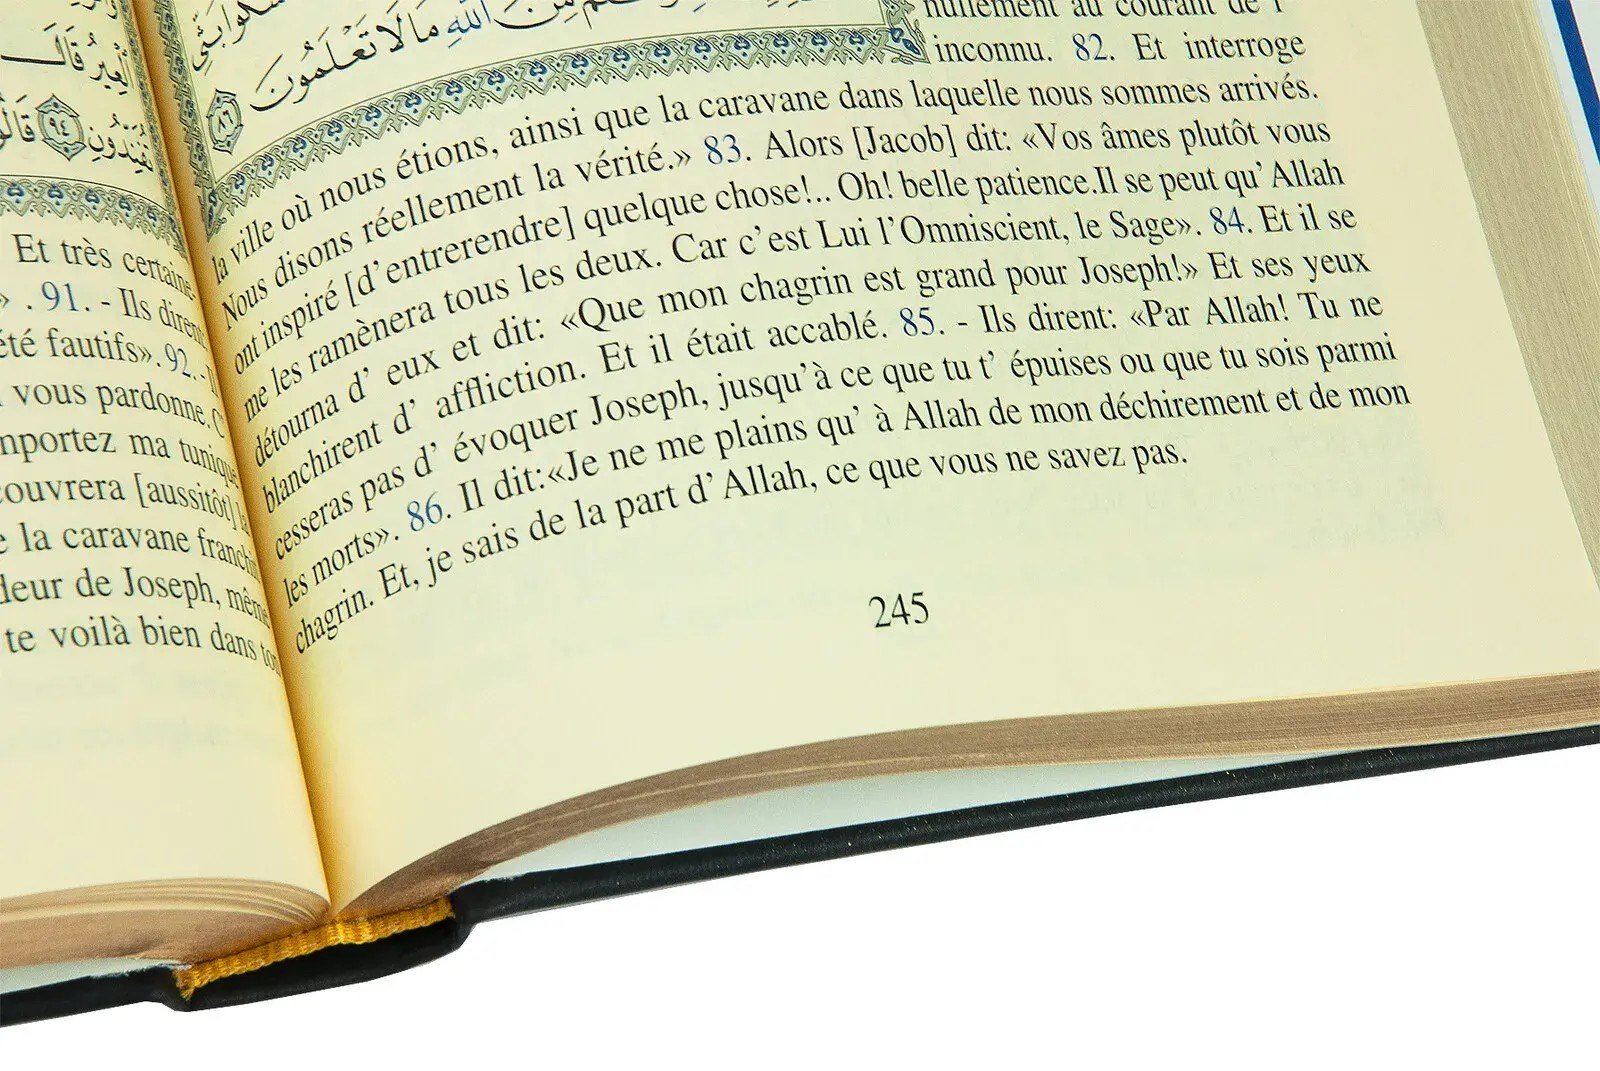 أَشْكُوا بَثِّي
مِنَ اللَّهِ مَا لَا تَعْلَمُونَ ٨٦
nullement au courant de l'
inconnu. 82. Et interroge
la ville où nous étions, ainsi que la caravane dans laquelle nous sommes arrivés.
Nous disons réellement la vérité.» 83. Alors [Jacob] dit: «Vos âmes plutôt vous
ont inspiré [d'entrerendre] quelque chose!.. Oh! belle patience.Il se peut qu'Allah
me les ramènera tous les deux. Car c'est Lui l'Omniscient, le Sage». 84. Et il se
détourna d' eux et dit: «Que mon chagrin est grand pour Joseph!» Et ses yeux
blanchirent d' affliction. Et il était accablé. 85. - Ils dirent: «Par Allah! Tu ne
cesseras pas d' évoquer Joseph, jusqu'à ce que tu t' épuises ou que tu sois parmi
les morts». 86. Il dit:«Je ne me plains qu' à Allah de mon déchirement et de mon
chagrin. Et, je sais de la part d' Allah, ce que vous ne savez pas.
245
الْعِيرُ قَالَ
تُفَنِّدُونِ ٩٤ قَالُوا
Et très certaine-
» . 91. - Ils dirent
été fautifs». 92. -
vous pardonne.C'
mportez ma tunique
couvrera [aussitôt] la
e la caravane franchi
deur de Joseph, même
te voilà bien dans ton